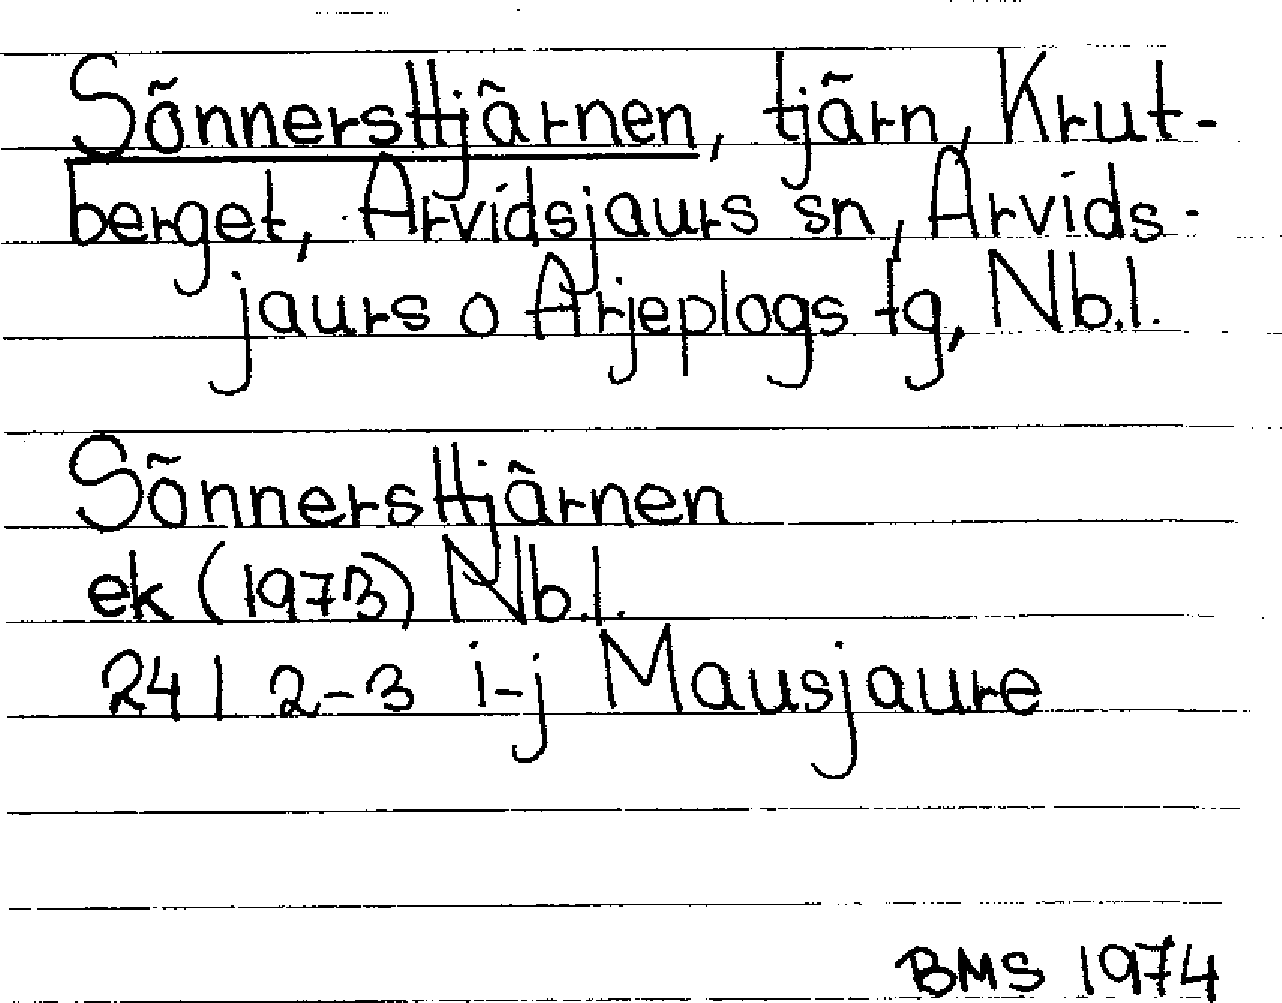 Sönnersttjärnen, tjärn, Krut-
berget, Arvidsjaurs sn, Arvids-
jaurs o Arjeplogs tg, Nb.l.
Sönnersttjärnen
ek (1973) Nb.l.
24 I 2-3 i-j Mausjaure
BMS 1974